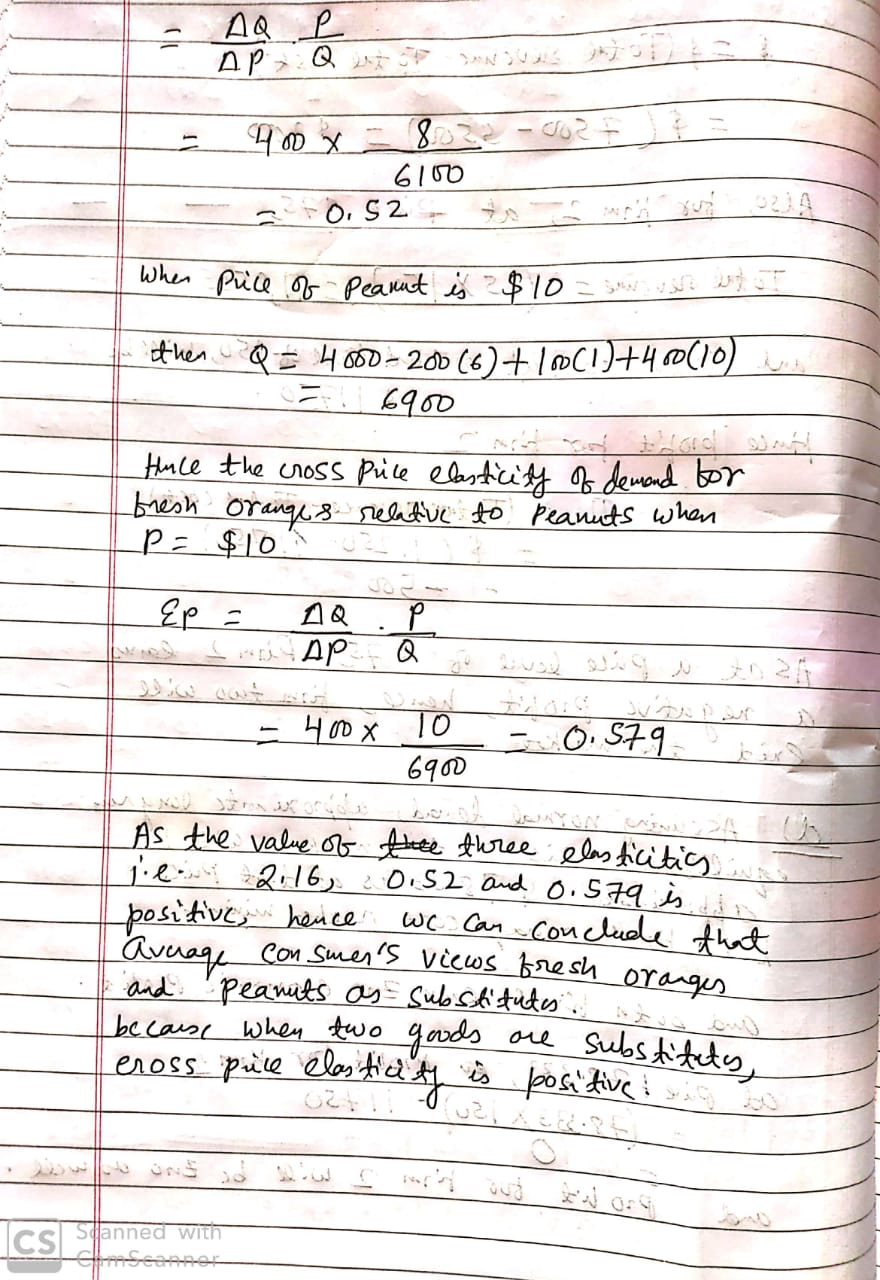 = ΔQ/ΔP . P/Q
= 400 x 8/6100
= 0.52
When Price of Peanut is $10
then Q = 4000 - 200(6) + 100(1) + 400(10)
= 6900
Hence the cross Price elasticity of demand for
fresh oranges relative to Peanuts when
P = $10
Ep = ΔQ/ΔP . P/Q
= 400 x 10/6900 = 0.579
As the value of three elasticities
i.e. 2.16, 0.52 and 0.579 is
positive, hence we can conclude that
average consumer's views fresh oranges
and peanuts as substitutes.
because when two goods are substitutes,
cross price elasticity is positive!
CS Scanned with
CamScanner